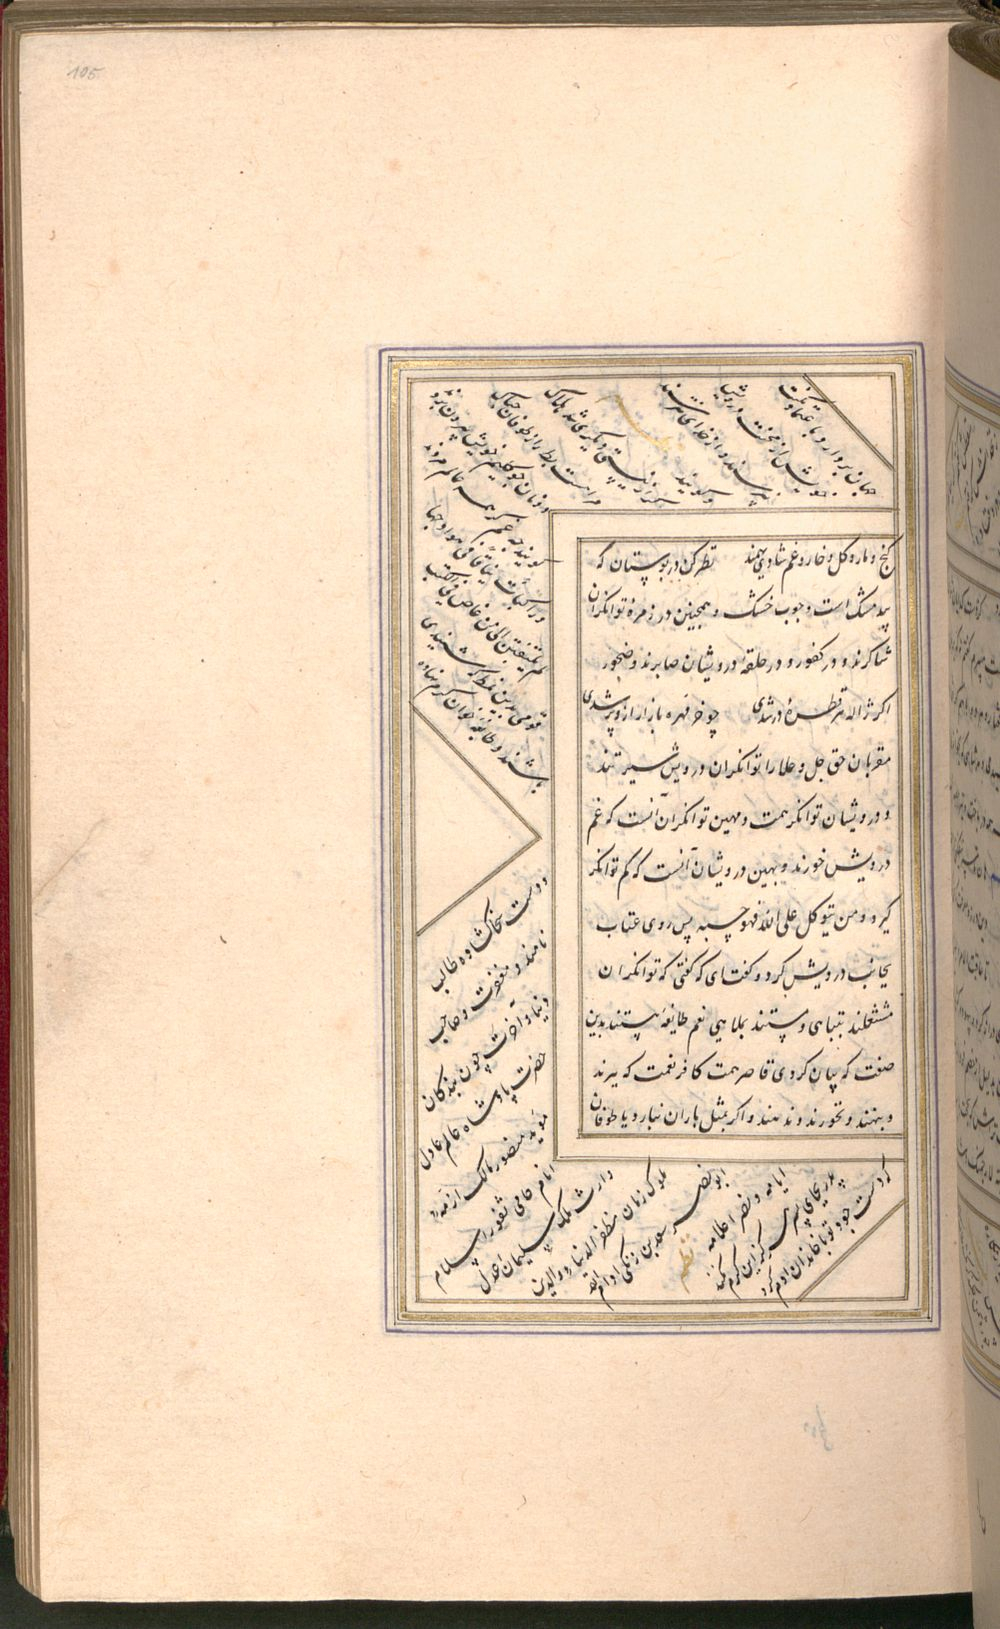 105
گنج و مار و گل و خار و غم شادی بهمند نظر کن در بوستان که
بید مشک است و چوب خشک و همچنین در زمرهٔ توانگران
شاکرند و کفور و در حلقهٔ درویشان صابرند و ضجور
اگر ژاله هر قطرهٔ در شدی چو خر مهره بازار ازو پر شدی
مقربان حق جل و علا را توانگران درویش سیرتند
و درویشان توانگر همت و مهین توانگران آنست که غم
درویش خورند و بهین درویشان آنست که کم توانگر
گیرد و من یتوکل علی الله فهو حسبه پس روی عتاب
بجانب درویش کرد و گفت ای که گفتی که توانگران
مشتغلند بتباهی و مستند بملاهی نعم طایفهٔ هستند بدین
صفت که بیان کردی قاصر همت کافر نعمت که ببرند
و بنهند و نخورند و ندهند و اگر بمثل باران نبارد یا طوفان
جهان بردارد باعتماد مکنت
خویش از محنت درویش
نپرسند و از خدای نترسند
و گویند
گر از نیستی دیگری شد هلاک
مرا هست بط را ز طوفان چه باک
دونان چو گلیم خویش بیرون بردند
گویند چه غم گر همه عالم مردند
و راکبات نیاقا فی هوادجها
لم یلتفتن الی من غاص فی الکثب
قومی بدین نمط که شنیدی
هستند و طایفه خوان کرم نهاده
و دست سخا گشاده طالب
نامند و مغفرت و صاحب
دنیا و آخرت چون بندگان
حضرت پادشاه عالم عادل
مؤید منصور مالک ازمه
انام حامی ثغور اسلام
وارث ملک سلیمان اعدل
ملوک زمان مظفر الدنیا والدین
ابو نصر سعد بن زنگی ادام الله
ایامه و نصر اعلامه
نظم
پدر بجای پسر هرگز این کرم نکند
که دست جود تو با خاندان آدم کرد